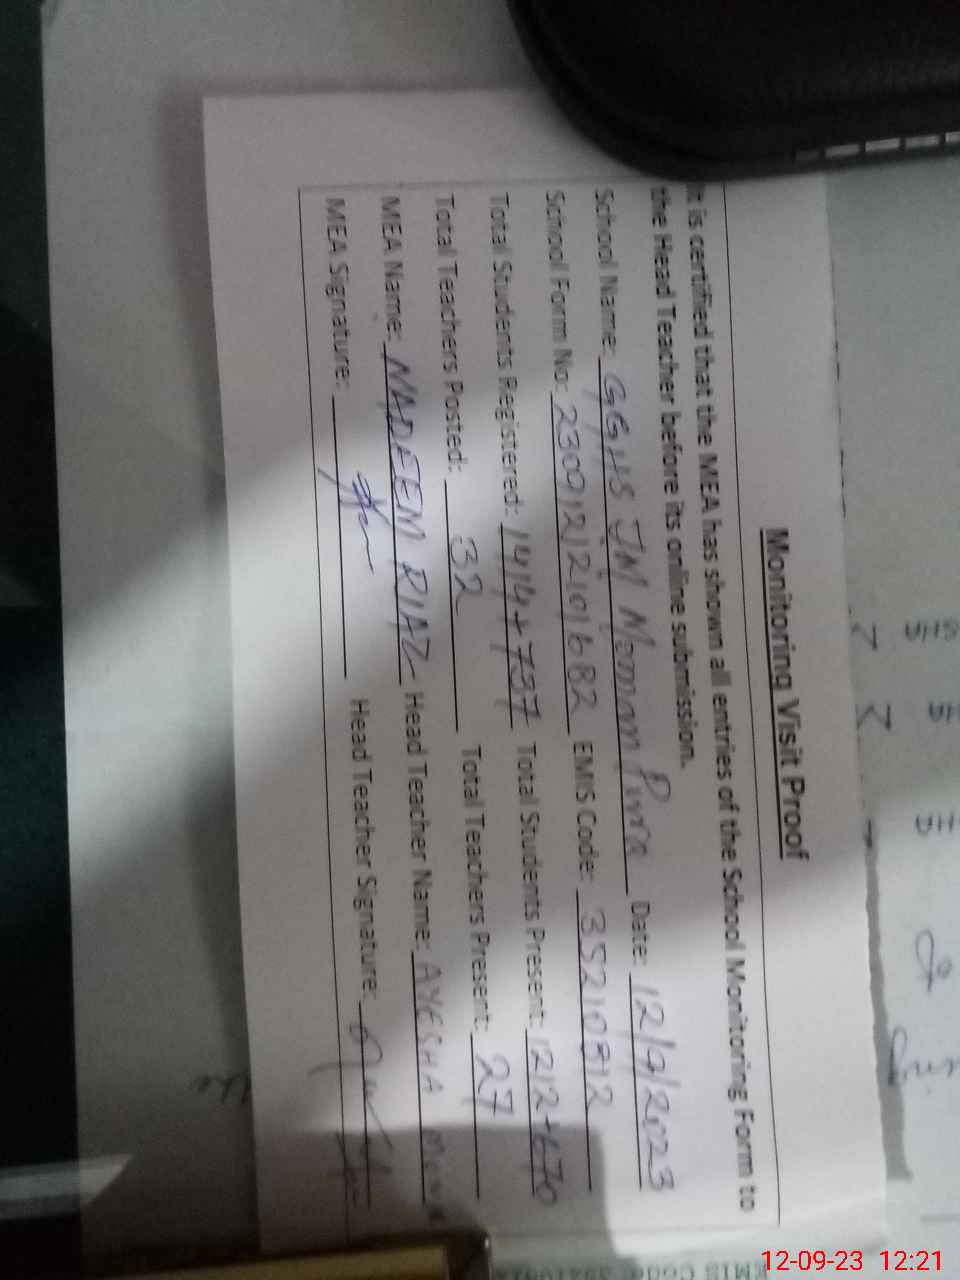 Monitoring Visit Proof
It is certified that the MEA has shown all entries of the School Monitoring Form to
the Head Teacher before its online submission.
School Name: GGHS JM Momin Pura Date: 12/9/2023
School Form No: 23091212101682 EMIS Code: 35210812
Total Students Registered: 1414+737 Total Students Present: 1212+670
Total Teachers Posted: 32 Total Teachers Present: 27
MEA Name: NADEEM RIAZ Head Teacher Name: AYESHA
MEA Signature: Head Teacher Signature:
12-09-23 12:21